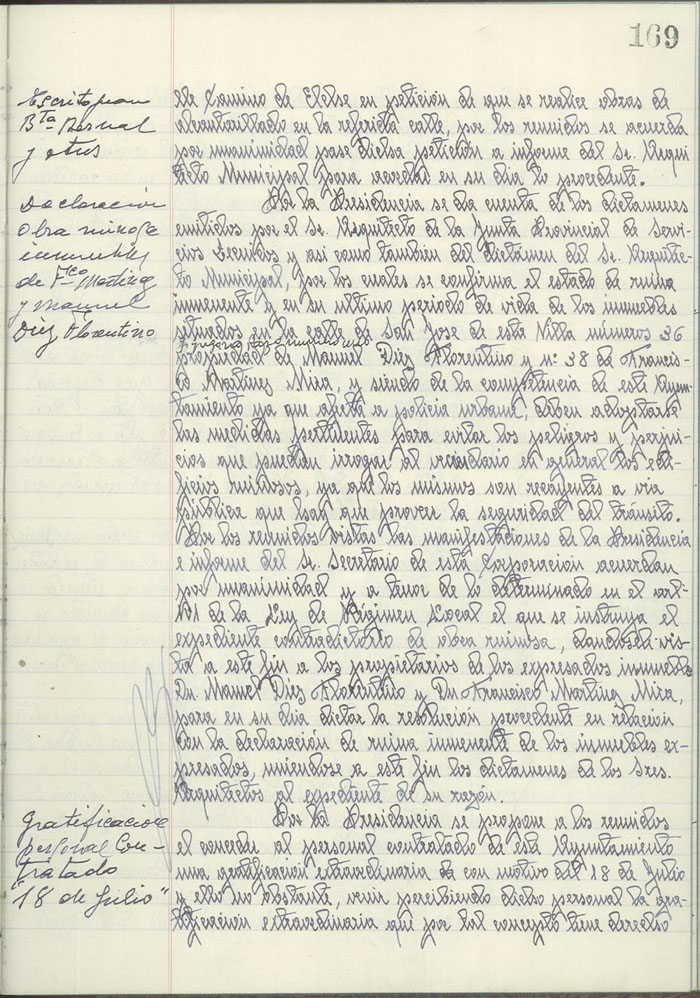 169
Escrito Juan
Bta Bernal
y otros
de Camino de Elche en petición de que se realice obras de
alcantarillado en la referida calle, por los reunidos se acuerda
por unanimidad pase dicha petición a informe del Sr. Arqui
tecto Municipal para acordar en su dia lo procedente.
Declaración
obra ruinosa
inmuebles
de Fco Martinez
y Manuel
Diez Florentino
Por la Presidencia se da cuenta de los dictamenes
emitidos por el Sr. Arquitecto de la Junta Provincial de Servi-
cios Tecnicos y asi como tambien del dictámen del Sr. Arquitec-
to Municipal, por los cuales se confirma el estado de ruina
inmenente y en su ultimo periodo de vida de los inmuebles
situados en la calle de San Jose de esta Villa números 36
propiedad de Manuel Diez Florentino y nº 38 de Francis-
co Martinez Mira, y siendo de la competencia de este Ayun-
tamiento ya que afecta a policia urbana, deben adoptarse
las medidas pertinentes para evitar los peligros y perjui-
cios que puedan irrogar al vecindario en general los edi-
ficios ruinosos, ya que los mismos son recayentes a via
pública que hay que proveer la seguridad del tránsito.
Por los reunidos vistas las manifestaciones de la Presidencia
e informe del Sr. Secretario de esta Corporación acuerdan
por unanimidad y a tenor de lo determinado en el arti-
de la Ley de Régimen Local el que se instruya el
expediente contradictorio de obra ruinosa, dandosele vis-
ta a este fin a los propietarios de los expresados inmuebles
Dn. Manuel Diez Florentino y Dn Francisco Martinez Mira,
para en su dia dictar la resolución procedente en relación
con la declaración de ruina inmenente de los inmuebles ex-
presados, uniendose a este fin los dictamenes de los Sres.
Arquitectos al expediente de su razón.
Gratificacion
personal Con-
tratado
"18 de Julio"
Por la Presidencia se propone a los reunidos
el conceder al personal contratado de este Ayuntamiento
una gratificacion extraordinaria de con motivo del 18 de Julio
y ello no obstante, venir percibiendo dicho personal la gra-
tificacion extraordinaria que por tal concepto tiene derecho